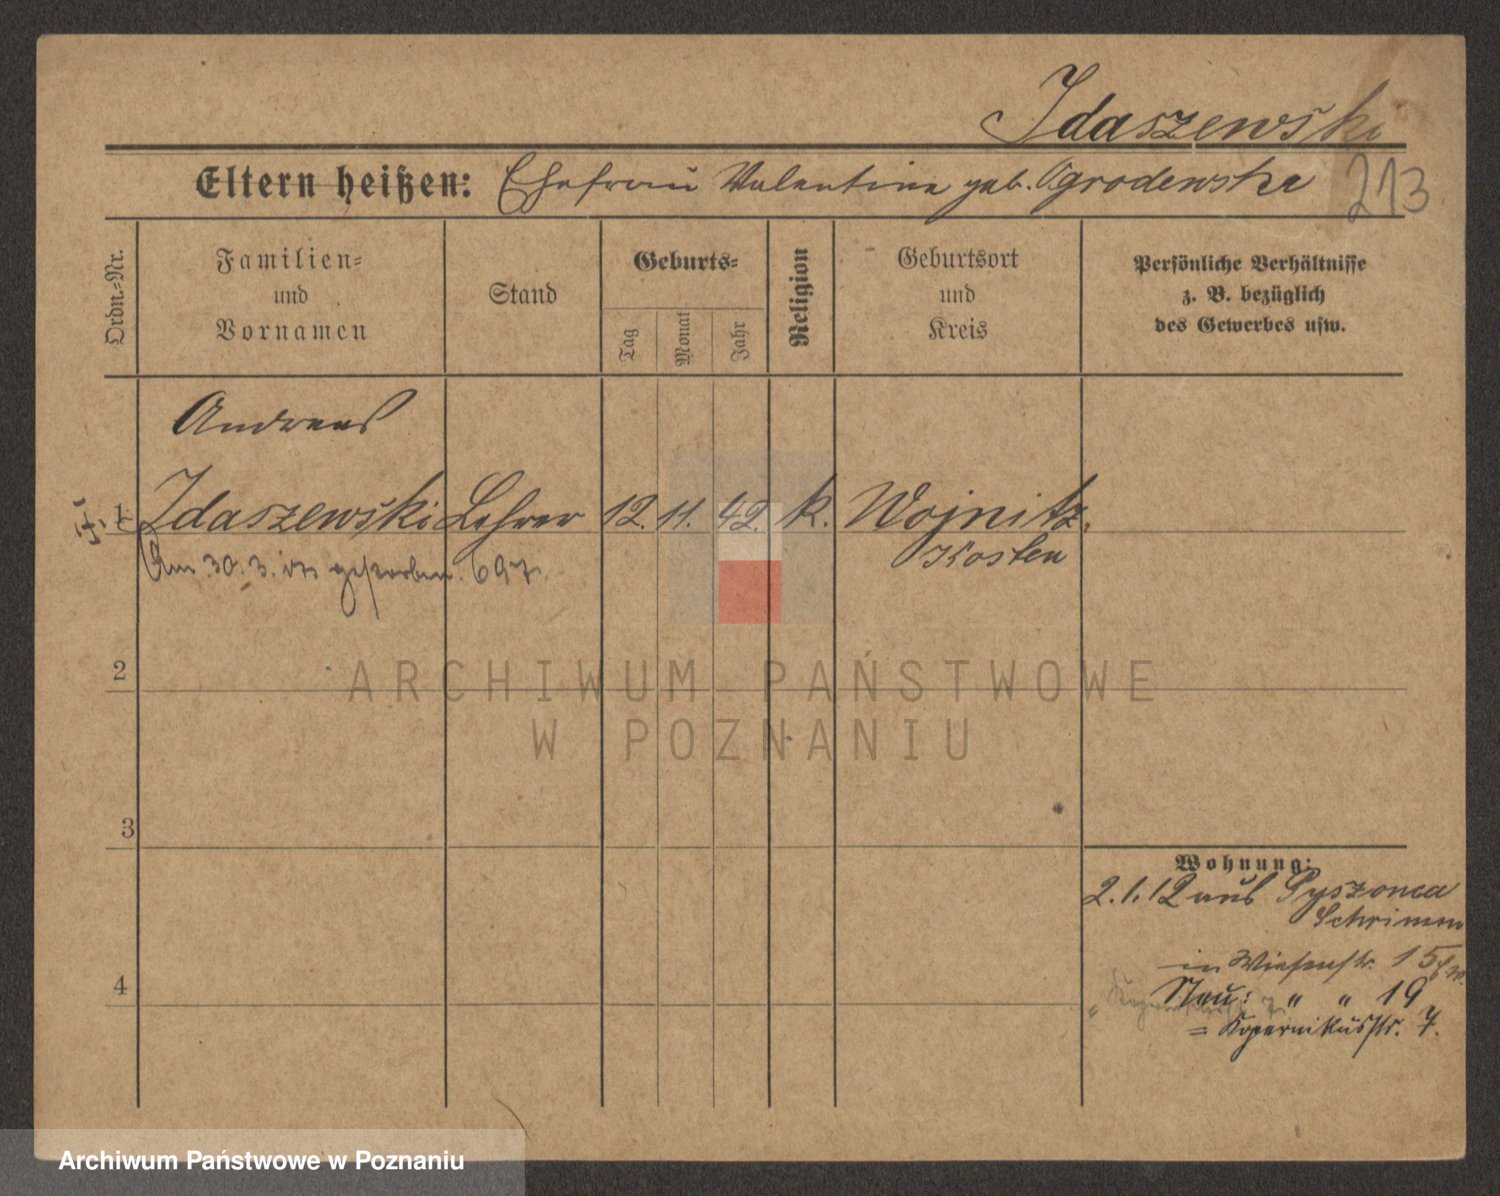 Idaszewski
Eltern heißen: Ehefrau Valentine geb. Ogrodewska 213
Ordn.-Nr.
Familien-
und
Vornamen
Stand
Geburts-
Tag
Monat
Jahr
Religion
Geburtsort
und
Kreis
Persönliche Verhältnisse
z. B. bezüglich
des Gewerbes usw.
Andreas
1 Idaszewski Lehrer 12. 11. 42. k. Wojnitz,
Kosten
Am 30. 3. gestorben. 697
2
3
4
Wohnung:
2.1.12 aus Pyszonca
Schrimm
in Wiesenstr. 15
Neu: " " 19
= Kopernikusstr. 7.
ARCHIWUM PAŃSTWOWE
W POZNANIU
Archiwum Państwowe w Poznaniu